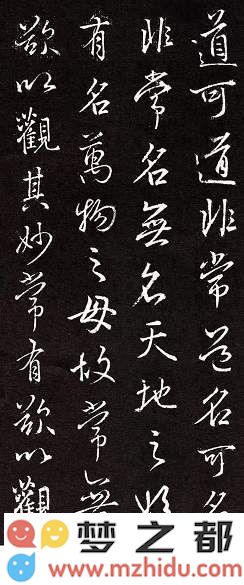 道可道非常道名可名
非常名無名天地之始
有名萬物之母故常無
欲以觀其妙常有欲以觀
梦之都
www.mzhidu.com